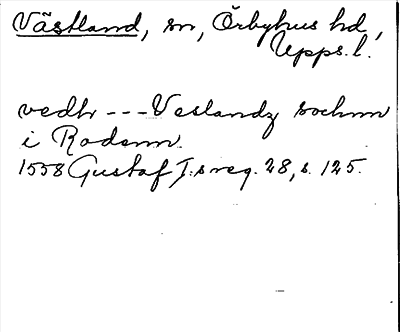 Västland, sn, Örbyhus hd,
Upps. l.
vedh --- Veslandz sochnn
i Rodenn.
1558 Gustaf I:s reg. 28, s. 125.